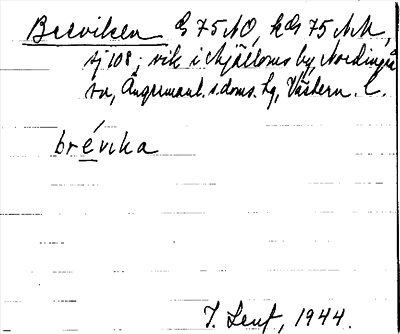 Breviken G 75 NO, kG 75 NN,
sj 108; vik i Mjälloms by, Nordingrå
sn, Ångermanl. s. doms. hg, Västern. l.
brévika
1944.